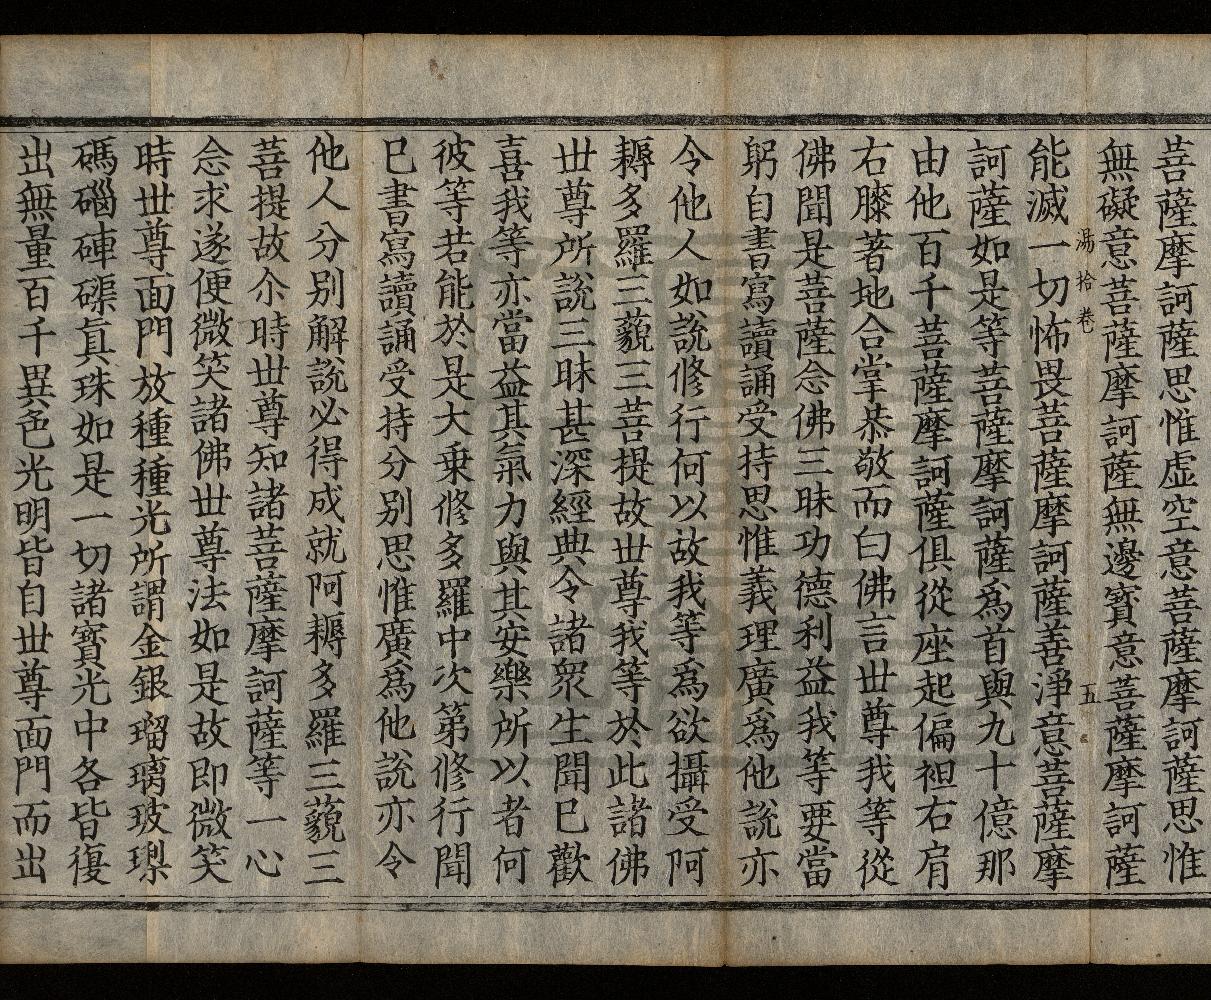 菩薩摩訶薩思惟虚空意菩薩摩訶薩思惟
無礙意菩薩摩訶薩無邊寳意菩薩摩訶薩
湯 拾卷 五
能滅一切怖畏菩薩摩訶薩善淨意菩薩摩
訶薩如是等菩薩摩訶薩爲首與九十億那
由他百千菩薩摩訶薩俱從座起偏袒右肩
右膝著地合掌恭敬而白佛言丗尊我等從
佛聞是菩薩念佛三昧功德利益我等要當
躬自書寫讀誦受持思惟義理廣爲他說亦
令他人如說修行何以故我等爲欲攝受阿
耨多羅三藐三菩提故丗尊我等於此諸佛
丗尊所說三昧甚深經典令諸衆生聞巳歡
喜我等亦當益其氣力與其安樂所以者何
彼等若能於是大乗修多羅中次第修行聞
巳書寫讀誦受持分别思惟廣爲他說亦令
他人分别解說必得成就阿耨多羅三藐三
菩提故尒時丗尊知諸菩薩摩訶薩等一心
念求遂便微笑諸佛丗尊法如是故即微笑
時丗尊面門放種種光所謂金銀瑠璃玻瓈
碼碯硨磲真珠如是一切諸寳光中各皆復
出無量百千異色光明皆自丗尊面門而出